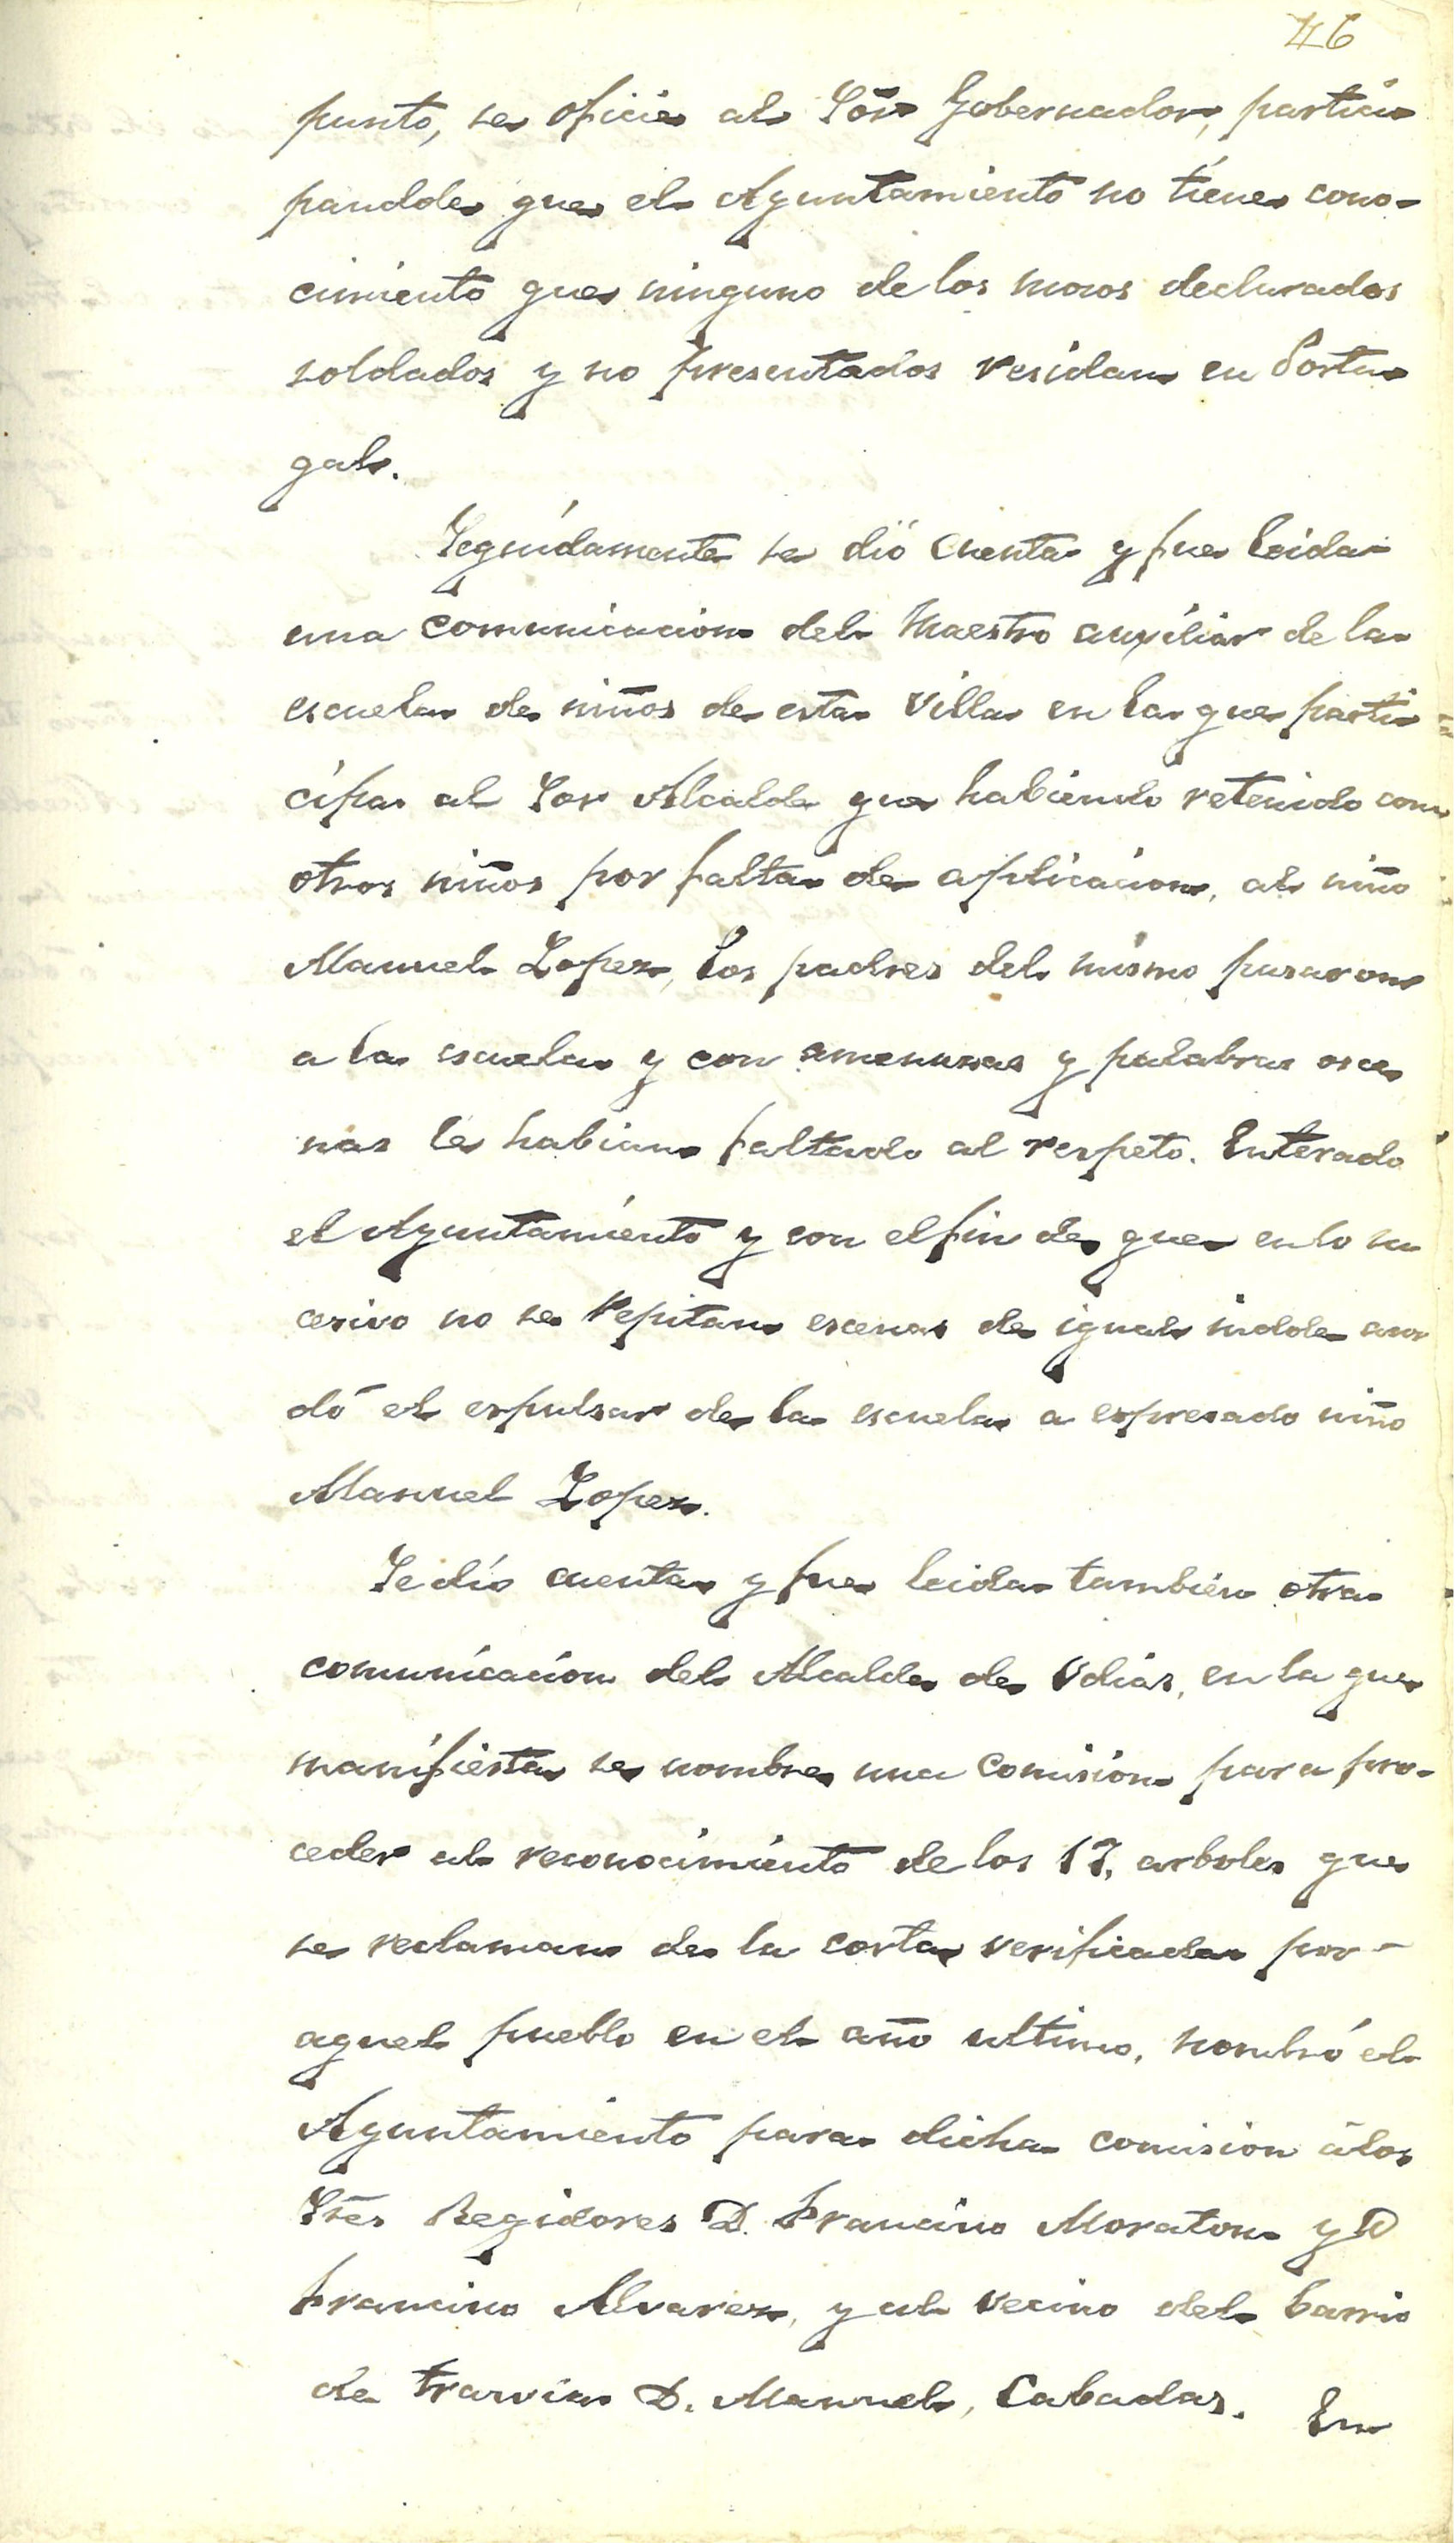 46
punto, se oficie al Sõr Gobernador, partici
pandole que el Ayuntamiento no tiene cono-
cimiento que ninguno de los mozos declarados
soldados y no presentados residan en Portu
gal.
Seguidamente se dió cuenta y fue leida
una comunicacion del Maestro auxiliar de la
escuela de niños de esta villa en la que parti=
cipa al Sor Alcalde que habiendo retenido con
otros niños por falta de aplicacion, al niño
Manuel Lopez, los padres del mismo pasaron
a la escuela y con amenazas y palabras osce
nas le habian faltado al respeto. Enterado
el Ayuntamiento y con el fin de que en lo su
cesivo no se repitan escenas de igual indole acor
dó el espulsar de la escuela a espresado niño
Manuel Lopez.
Se dio cuenta y fue leida tambien otra
comunicacion del Alcalde de Udias, en la que
manifiesta se nombre una comisión para pro-
ceder al reconocimiento de los 17, arboles que
se reclaman de la corta verificada por-
aquel pueblo en el año ultimo, nombró el
Ayuntamiento para dicha comision á los
Sres Regidores D. Francisco Moraton y D
Francisco Alvarez, y al vecino del barrio
de D. Manuel, Cabadas. En